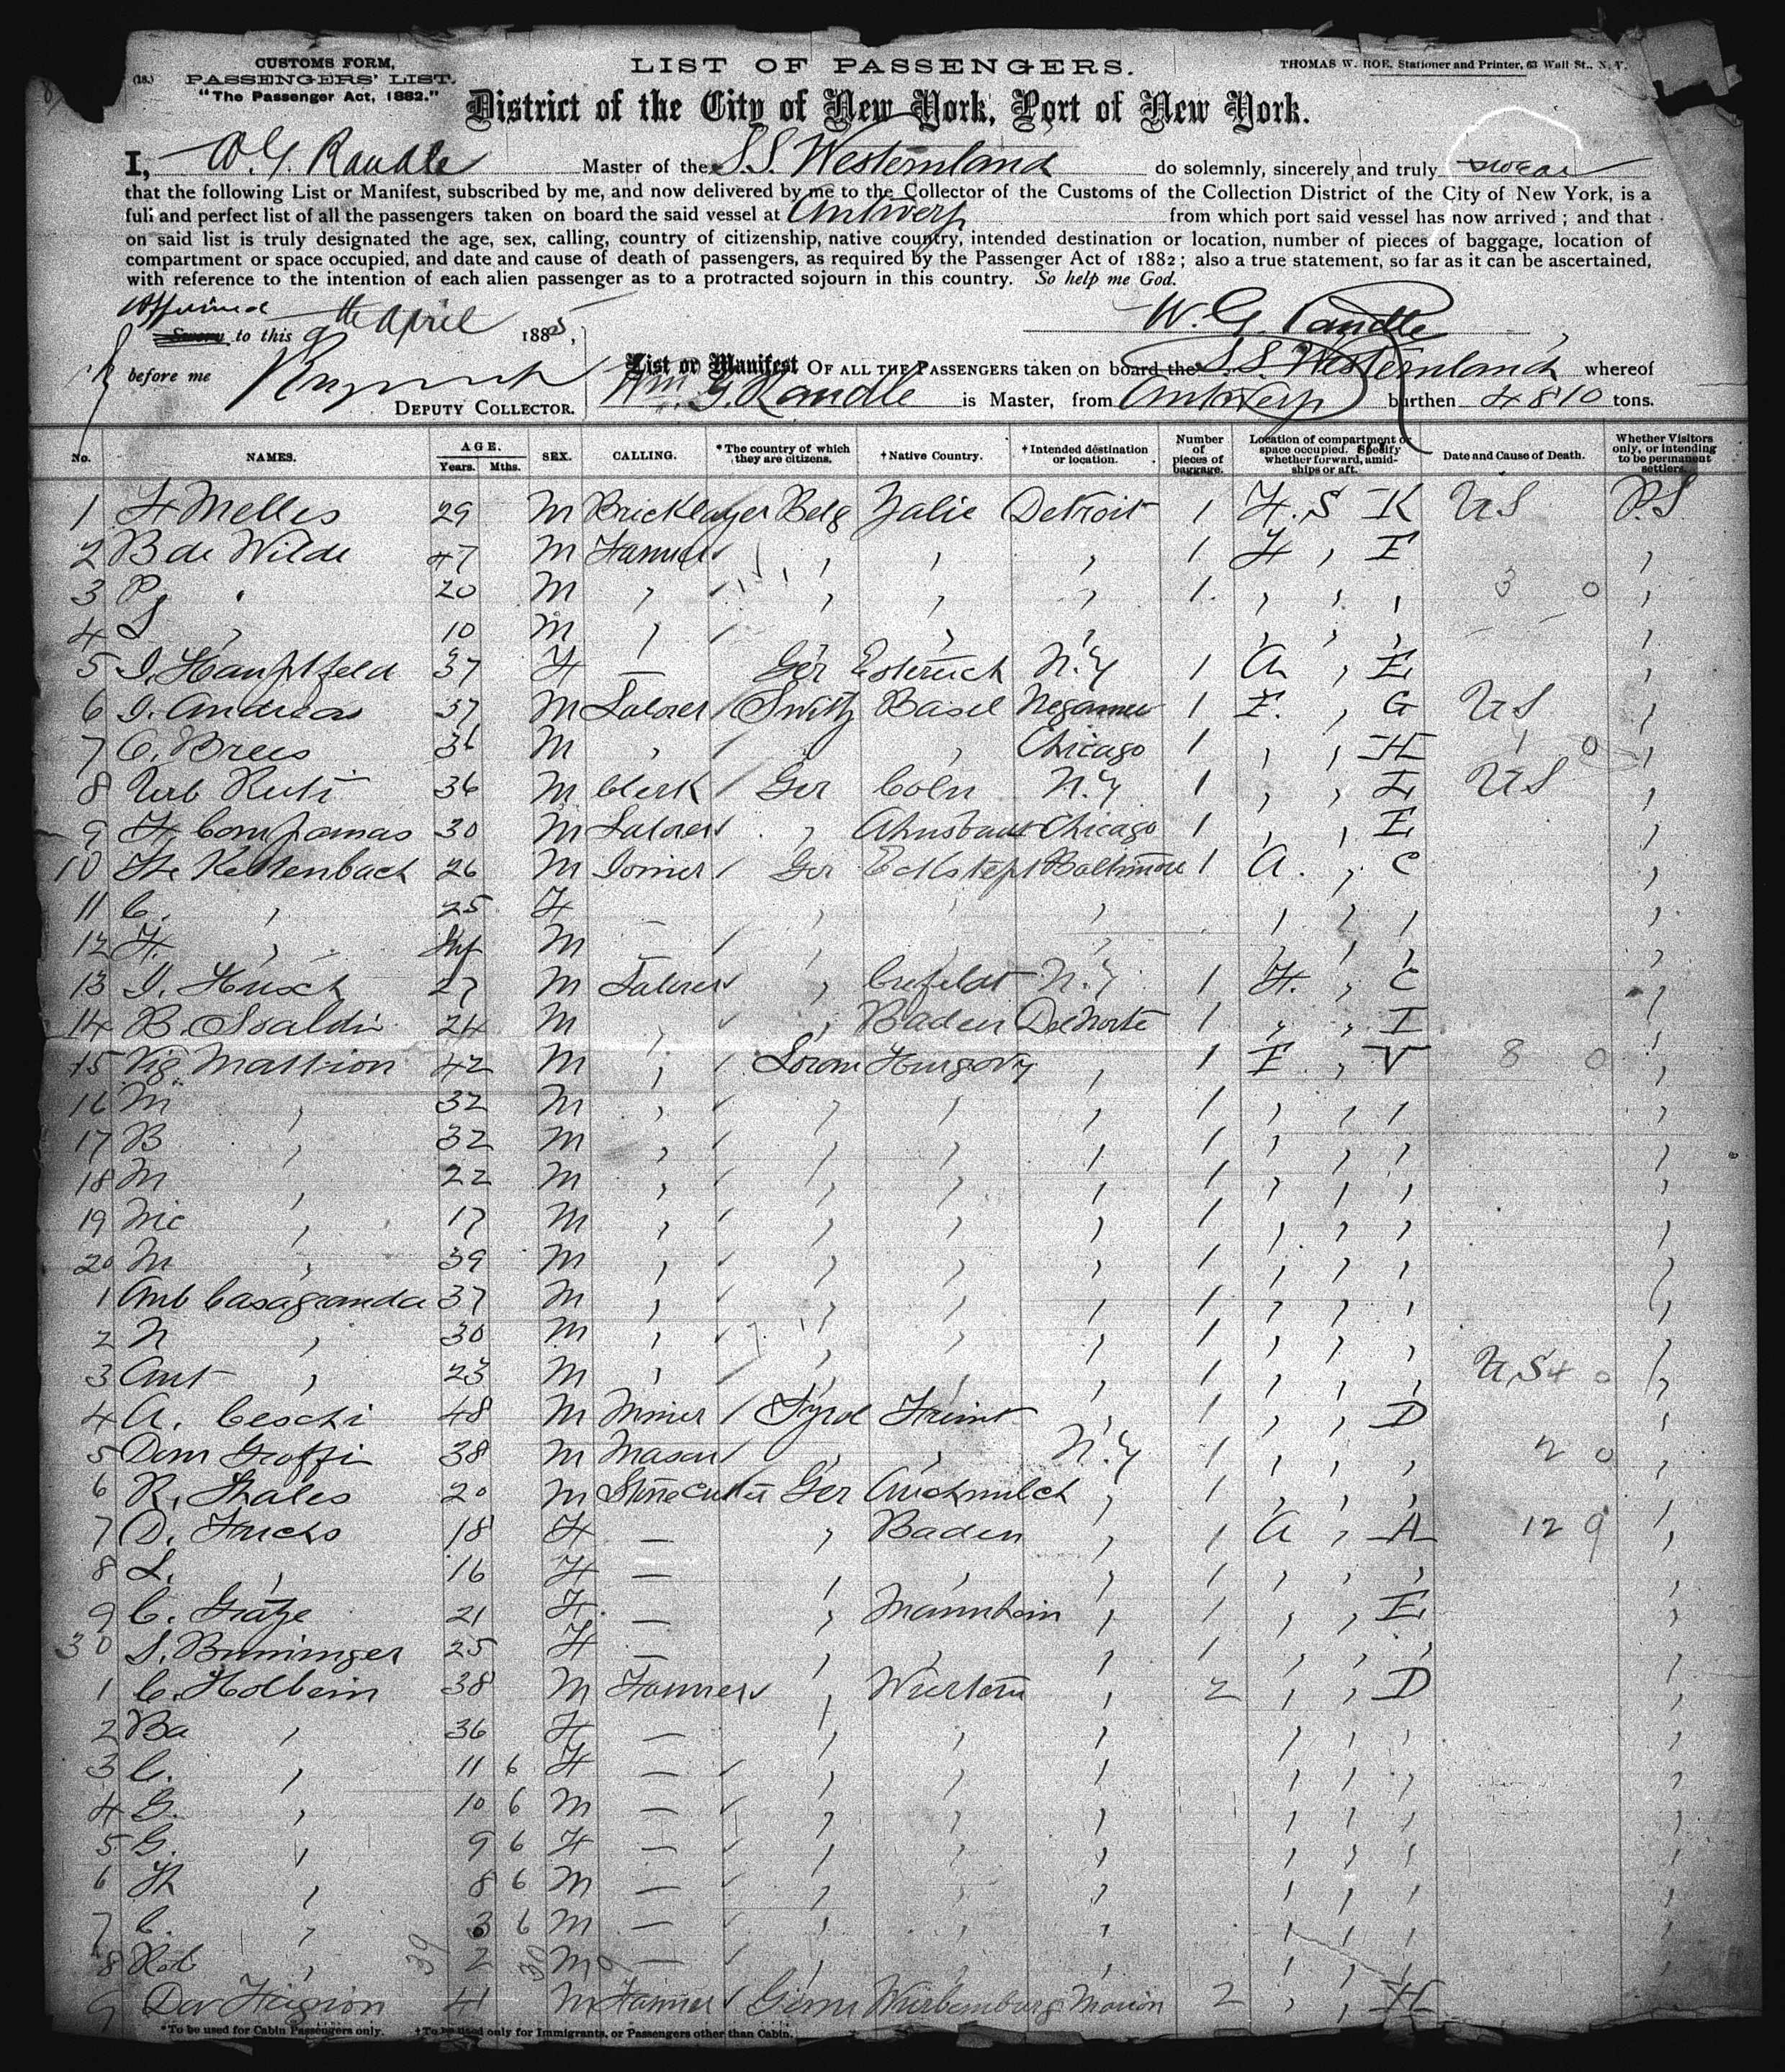 (18.)
CUSTOMS FORM,
PASSENGERS' LIST.
"The Passenger Act, 1882."
LIST OF PASSENGERS.
THOMAS W. ROE, Stationer and Printer, 63 Wall St., N. Y.
District of the City of New York, Port of New York.
I, W. G. Randle Master of the S.S. Westernland do solemnly, sincerely and truly swear
that the following List or Manifest, subscribed by me, and now delivered by me to the Collector of the Customs of the Collection District of the City of New York, is a
full and perfect list of all the passengers taken on board the said vessel at Antwerp from which port said vessel has now arrived ; and that
on said list is truly designated the age, sex, calling, country of citizenship, native country, intended destination or location, number of pieces of baggage, location of
compartment or space occupied, and date and cause of death of passengers, as required by the Passenger Act of 1882 ; also a true statement, so far as it can be ascertained,
with reference to the intention of each alien passenger as to a protracted sojourn in this country. So help me God.
Affirmed
Sworn to this 9th April 1885,
W. G. Randle
before me
DEPUTY COLLECTOR.
List or Manifest OF ALL THE PASSENGERS taken on board the S.S. Westernland whereof
Wm. G. Randle is Master, from Antwerp burthen 4810 tons.
No. NAMES. AGE. Years. Mths. SEX. CALLING. *The country of which they are citizens. †Native Country. †Intended destination or location. Number of pieces of baggage. Location of compartment or space occupied. Specify whether forward, amidships or aft. Date and Cause of Death. Whether Visitors only, or intending to be permanent settlers.
1 F Melles 29 M Bricklayer Belg Detroit 1 F. S K U S P.S
2 B de Wilde 47 M Farmer , , , 1 F , I ,
3 P , 20 M , , , , 1 , , , 3 0 ,
4 S , 10 M , , , , , , ,
5 37 F — Ger N.Y 1 A , E ,
6 J. Andreas 37 M Laborer Switz Basel Negaunee 1 F. , G U S ,
7 C. Brees 36 M , , Chicago 1 , , H 1 0 ,
8 36 M Clerk Ger Coln N.Y 1 , , I U S ,
9 30 M Laborer , Chicago 1 , , I ,
10 Kettenbach 26 M Joiner Ger Baltimore 1 A , C ,
11 C. , 25 F — , , , , , , ,
12 F. , Inf M — , , , , , , ,
13 27 M Laborer , Crefeldt N.Y 1 F. , C ,
14 24 M , , Baden Del Norte 1 , , I ,
15 42 M , , 1 F , V 8 0 ,
16 M , 32 M , , , , 1 , , , ,
17 B , 32 M , , , , 1 , , , ,
18 M , 22 M , , , , 1 , , , ,
19 Nic , 17 M , , , , 1 , , , ,
20 M , 39 M , , , , 1 , , , ,
1 Amb Casagranda 37 M , , , , 1 , , , ,
2 N , 30 M , , , , 1 , , , ,
3 Ant , 23 M , , , , 1 , , , U S 4 0 ,
4 A. Ceschi 48 M Miner Tyrol Trient , 1 , , D ,
5 Dom Groffi 38 M Mason , , N.Y 1 , , , 2 0 ,
6 R. Thales 20 M Stone Cutter Ger , 1 , , , ,
7 D. Fuchs 18 F — , Baden , 1 A , A 12 9 ,
8 L. , 16 F — , , , 1 , , , ,
9 C. Gratze 21 F — , Mannheim , 1 , , E ,
30 S. Bruninger 25 F — , , , 1 , , , ,
1 C. Holbein 38 M Farmer , Wurtem , 2 , , D ,
2 Ba , 36 F — , , , , , , ,
3 C. , 11 6 F — , , , , , , ,
4 G. , 10 6 M — , , , , , , ,
5 G. , 9 6 F — , , , , , , ,
6 Th , 8 6 M — , , , , , , ,
7 C. , 3 6 M — , , , , , , ,
8 Rob , 2 M — , , , , , , ,
9 41 M Farmer Germ Marion 2 , , H
*To be used for Cabin Passengers only. †To be used only for Immigrants, or Passengers other than Cabin.